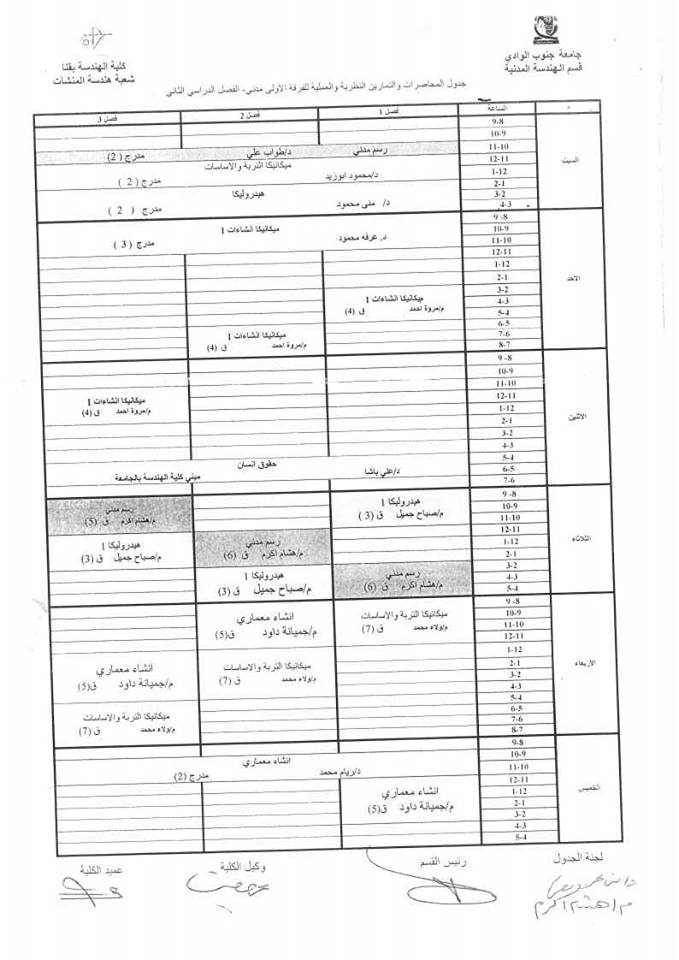 جامعة جنوب الوادي
قسم الهندسة المدنية
كلية الهندسة بقنا
شعبة هندسة المنشآت
جدول المحاضرات والتمارين النظرية والعملية للفرقة الاولى مدني- الفصل الدراسي الثاني
الساعة فصل 1 فصل 2 فصل 3
السبت
9-8
10-9
11-10
12-11
1-12
2-1
3-2
4-3
رسم مدني د/طواب علي مدرج (2)
ميكانيكا التربة والاساسات
د/محمود ابوزيد مدرج (2)
هيدروليكا
د/ منى محمود مدرج (2)
الاحد
9-8
10-9
11-10
12-11
1-12
2-1
3-2
4-3
5-4
6-5
7-6
8-7
ميكانيكا انشاءات 1
د. عرفه محمود مدرج (3)
ميكانيكا انشاءات 1
م/مروة احمد ق (4)
ميكانيكا انشاءات 1
م/مروة احمد ق (4)
الاثنين
9-8
10-9
11-10
12-11
1-12
2-1
3-2
4-3
5-4
6-5
7-6
ميكانيكا انشاءات 1
م/مروة احمد ق(4)
حقوق انسان
د/علي باشا مبني كلية الهندسة بالجامعة
الثلاثاء
9-8
10-9
11-10
12-11
1-12
2-1
3-2
4-3
5-4
هيدروليكا 1
م/صباح جميل ق (3)
رسم مدني
م/هشام اكرم ق (5)
رسم مدني
م/هشام اكرم ق (6)
هيدروليكا 1
م/صباح جميل ق (3)
رسم مدني
م/هشام اكرم ق (6)
هيدروليكا 1
م/صباح جميل ق (3)
الاربعاء
9-8
10-9
11-10
12-11
1-12
2-1
3-2
4-3
5-4
6-5
7-6
8-7
ميكانيكا التربة والاساسات
م/ولاء محمد ق (7)
انشاء معماري
م/جميانة داود ق(5)
ميكانيكا التربة والاساسات
م/ولاء محمد ق (7)
انشاء معماري
م/جميانة داود ق(5)
ميكانيكا التربة والاساسات
م/ولاء محمد ق (7)
الخميس
9-8
10-9
11-10
12-11
1-12
2-1
3-2
4-3
5-4
انشاء معماري
د/ريام محمد مدرج (2)
انشاء معماري
م/جميانة داود ق(5)
لجنة الجدول رئيس القسم وكيل الكلية عميد الكلية
م/هشام اكرم